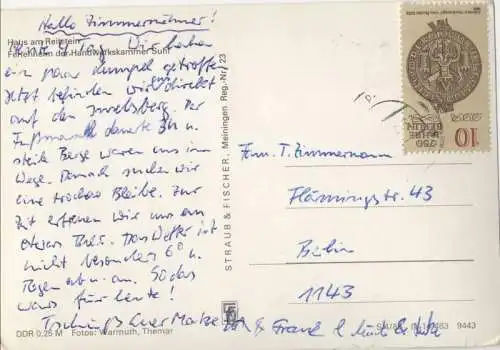 Hallo Zimmermänner!
Haus am Reitstein
Ferienheim der Handwerkskammer Suhl
heute 4. Tag. Wir haben
ein paar Kumpel getroffen
Jetzt befinden wir direkt
auf den Inselsberg. Der
Fußmarsch dauerte 3h u.
steile Berge waren uns im
Wege. Danach suchen wir
eine trockene Bleibe. Zur
Zeit erfreuen wir uns an
etwas Thee. Das Wetter ist
nicht besonders 6° u.
Regen
war's für heute!
Tschüß Euer Matze & Frank
DDR 0,25 M Fotos: Warmuth, Themar
STRAUB & FISCHER, Meiningen Reg.-Nr. 23
750
JAHRE
BERLIN
DDR
10
Fam. T. Zimmermann
Flämingstr. 43
Berlin
1143
9443